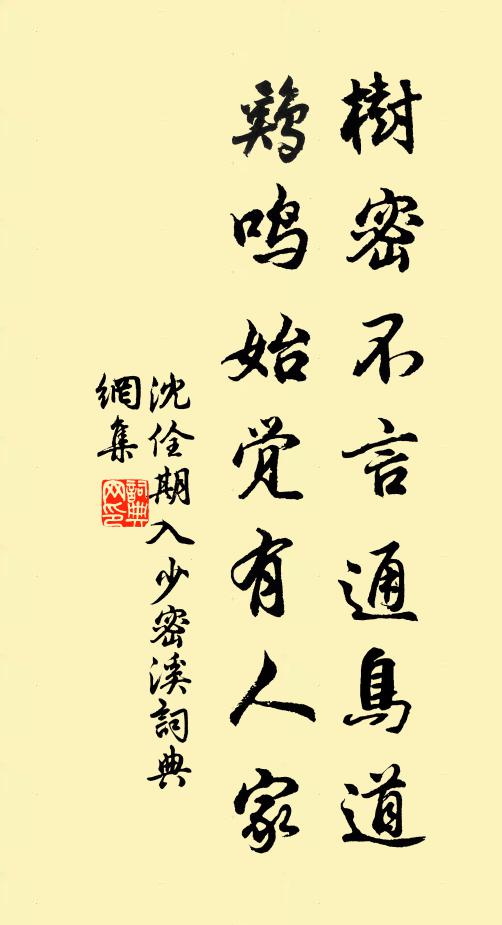 樹密不言通鳥道
鶏鸣始觉有人家
沈佺期入少密溪詞典
網集
詞典網印